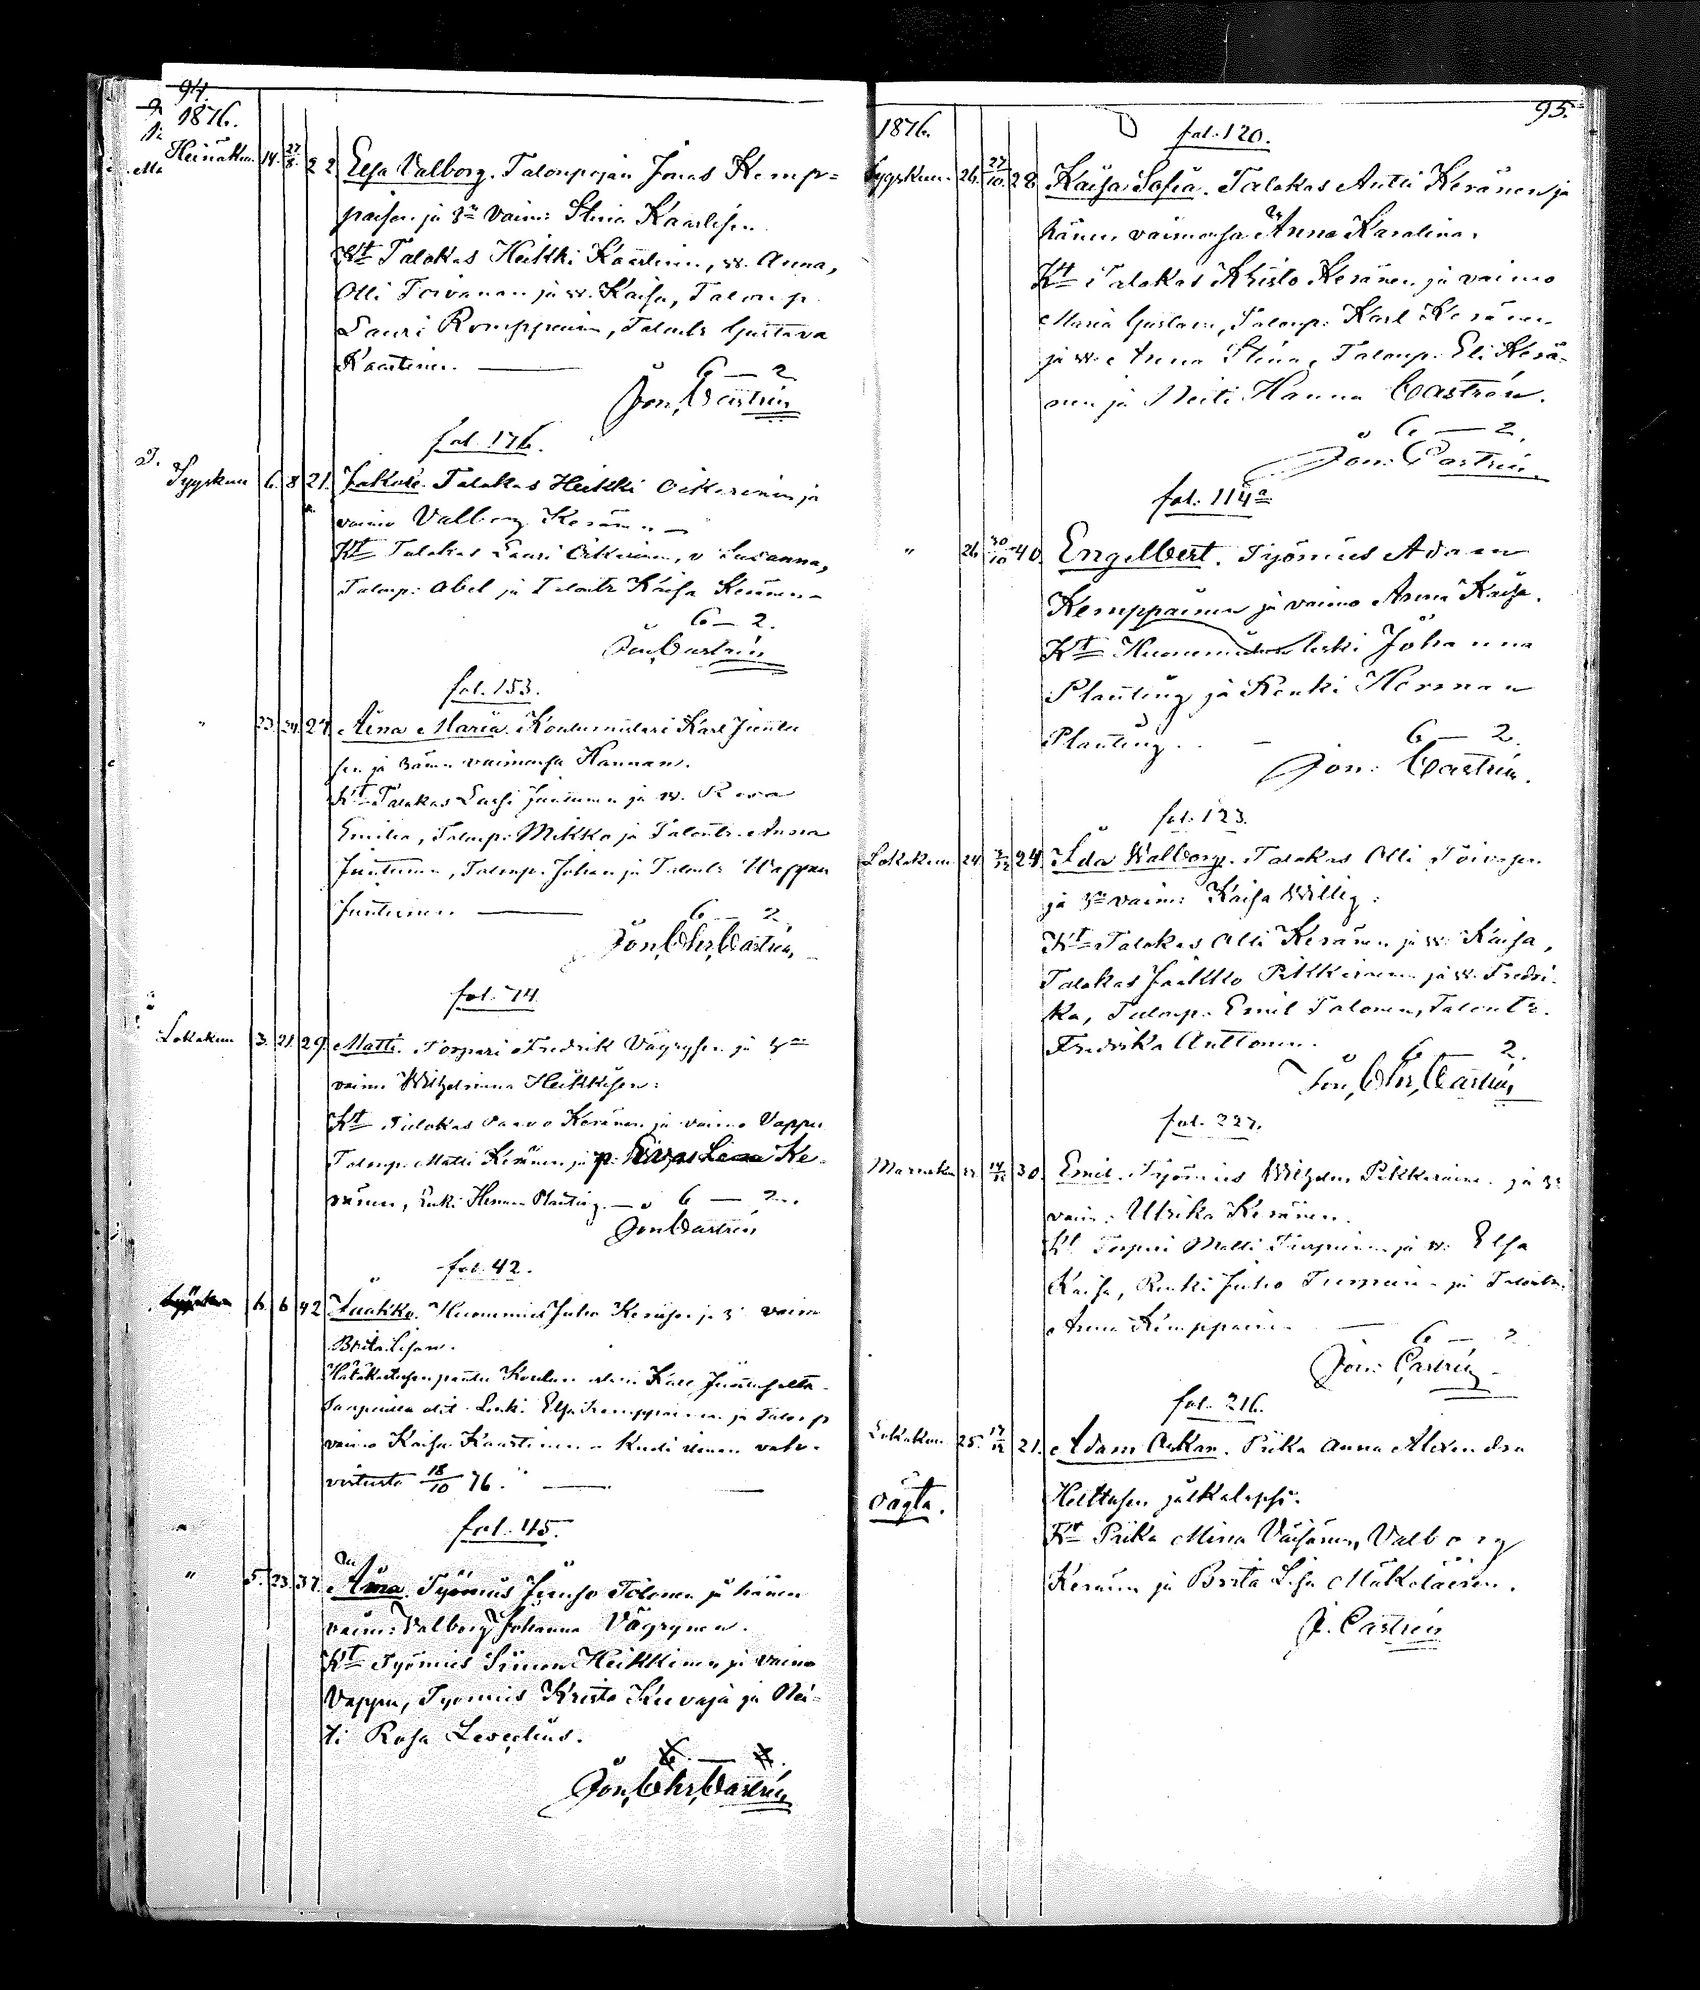 94.
1876.
Heinäkuu 14. 27/8. 22 Elsa Valborg. Talonpojan Jonas Kemp-
paisen ja 3n vaim: Stina Kaarlisen
Kt Talokas Heikki Kaarlinen, w. Anna,
Olli Toivanen ja w. Kaisa, Talonp.
Lauri Romppainen, Talontr Gustava
Kaarlinen. 6 — 2
Jon, Castrén
fol. 176.
Syyskuu 6. 8 21. Talokas Heikki Oikarinen ja
vaimo Valborg Keränen
Kt Talokas Lauri Oikarinen, v Susanna,
Talonp: Abel ja Talontr Kaisa Keränen
6 — 2.
Jon, Castrén
fol. 153.
" 23. 24. 27. Aina Maria. Koulumestari Karl Juntu-
sen ja hänen vaimonsa Hannan.
Kt Talokas Lassi Juntunen ja w. Rosa
Emilia, Talonp: Mikko ja Talontr. Anna
Juntunen, Talonp. Johan ja Talontr Wappu
Juntunen. 6 — 2.
Jon, Chr, Castrén,
fol. 74.
Lokakuu 3. 21. 29. Matti. Torpari Fredrik Väyrysen ja
vaimo Wilhelmina Heikkisen:
Kt Talokas Paavo Keränen ja vaimo Vappu
Talonp. Matti Keränen ja p: Liena Ke-
ränen, Renki Herman Planting. 6 — 2.
Jon Castrén
fol. 42.
6. 6 42 Jaakko. Huonemies Juho Keräsen ja vaimo
Brita Lisan.
Hätäkasteen pannut Koulumestari Kalle Juntuselta
Saapuvilla olit. Leski Elsa Kemppainen ja Talonp
vaimo Kaisa Kaarlinen
18/10 76.
fol. 45.
" 5. 23. 37. Aina. Työmies Juuso Tolonen ja hänen
vaim: Valborg Johanna Väyrynen.
Kt Työmies Simon Heikkinen ja vaimo
Vappu, Työmies Kristo Kuvaja ja Nei-
ti Rosa Levelius.
Jon, Chr, Castrén
95.
1876.
fol. 120.
Syyskuu. 26. 27/10. 28 Kaisa Sofia. Talokas Antti Keränen ja
hänen vaimonsa Anna Karolina.
Kt Talokas Kristo Keränen ja vaimo
Maria Gustava, Talonp: Karl Keränen
ja w. Anna Stina, Talonp. Eli Kerä-
nen ja Neiti Hanna Castrén.
6 — 2.
Jon: Castrén
fol. 114a
" 26. 30/10 40. Engelbert. Työmies Adam
Kemppainen ja vaimo Anna Kaisa.
Kt leski Johanna
Planting ja Renki Herman
Planting. 6 — 2.
Jon: Castrén.
fol. 123.
Lokakuu 24 3/12 24. Ida Walborg. Talokas Olli Toivasen
ja 3n vaim: Kaisa Willig:
Kt Talokas Olli Keränen ja w: Kaisa,
Talokas Jaakko Pikkarainen ja w. Fredri-
ka, Talonp. Emil Tolonen, Talontr.
Fredrika Anttonen. 6 — 2.
Jon, Chr, Castrén
fol. 227.
Marraskuu 14/12 30. Emil. Työmies Wilhelm Pikkarainen ja 3n
vaim: Ulrika Keränen.
Kt Torpari Matti Turpeinen ja w: Elsa
Kaisa, Renki Juho Turpeinen ja Talontr.
Anna Kemppainen 6 — 2
Jon: Castrén
fol. 216.
Lokakuu 25. 17/12 21. Adam Oskar. Piika Anna Alexandra
oägta.
Heittusen jälkalapsi.
Kt Piika Mina Väisänen, Valborg
Keränen ja Brita Lisa Mäkeläinen.
J. Castrén